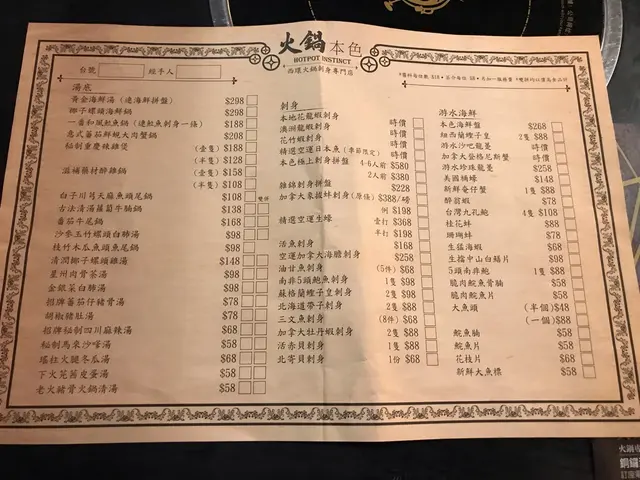 火鍋本色
HOTPOT INSTINCT
西環火鍋刺身專門店
台號
經手人
湯底
黃金海鮮湯 (連海鮮拼盤) $298
椰子螺頭海鮮鍋 $298
一番和風魷魚鍋 (連魷魚刺身一條) $188
意式蕃茄鮮蜆大肉蟹鍋 $208
秘制重慶辣雞煲 (壹隻) $188
(半隻) $128
滋補藥材醉雞鍋 (壹隻) $158
(半隻) $108
白子川芎天麻魚頭尾鍋 $108
古法清湯蘿蔔牛腩鍋 $138
蕃茄牛尾鍋 $168
沙參玉竹螺頭白肺湯 $98
枝竹木瓜魚頭魚尾鍋 $98
清潤椰子螺頭雞湯 $148
星州肉骨茶湯 $98
金銀菜白肺湯 $98
招牌蕃茄仔豬骨湯 $78
胡椒豬肚湯 $78
招牌秘制四川麻辣湯 $68
秘制馬來沙嗲湯 $58
瑤柱火腿冬瓜湯 $68
下火芫茜皮蛋湯 $58
老火豬骨火鍋清湯 $58
刺身
本地花龍蝦刺身 時價
澳洲龍蝦刺身 時價
花竹蝦刺身 時價
精選空運日本魚 (季節限定) 時價
本色極上刺身拼盤 4-6人前 $580
2人前 $380
雜錦刺身拼盤 $228
加拿大象拔蚌刺身 (原條) $388/磅
例 $198
精選空運生蠔 壹打 $368
半打 $198
活魚刺身 $168
空運加拿大海膽刺身 $258
油甘魚刺身 (5件) $68
南非5頭鮑魚刺身 1隻 $98
蘇格蘭蟶子皇刺身 2隻 $98
北海道帶子刺身 2隻 $88
三文魚刺身 (8件) $68
加拿大牡丹蝦刺身 2隻 $88
活赤貝刺身 1隻 $88
北寄貝刺身 1份 $68
游水海鮮
本色海鮮盤 $268
紐西蘭蟶子皇 2隻 $88
游水沙巴龍躉 時價
加拿大登格尼斯蟹 時價
游水珍珠龍躉 $258
美國桶蠔 $148
新鮮奄仔蟹 1隻 $88
醉翁蝦 $78
台灣九孔鮑 4隻 $108
桂花蚌 $88
珊瑚蚌 $78
生猛海蝦 $68
生擋中山白鱔片 $98
5頭南非鮑 1隻 $88
脆肉鯇魚骨腩 $58
脆肉鯇魚片 $58
大魚頭 (半個) $48
(一個) $88
鯇魚腩 $58
鯇魚片 $58
花枝片 $68
新鮮大魚標 $58